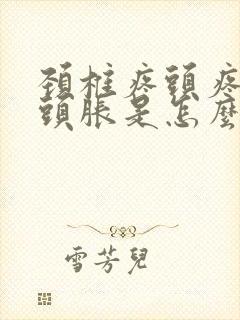 頚椎疼頭疼
頭脹是怎麼
雪芳兒